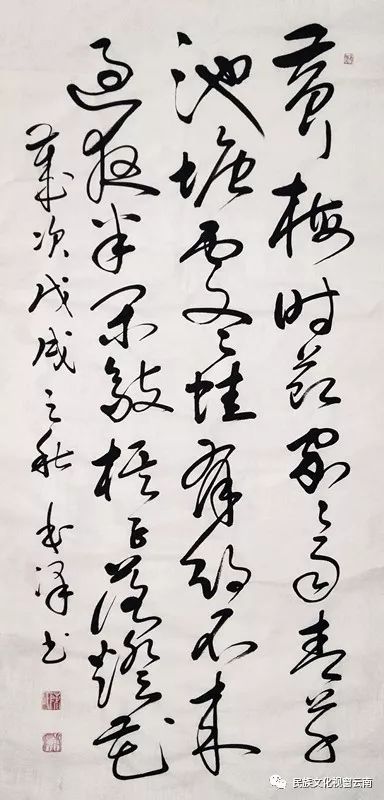 黄梅时节家々雨青草
池塘处々蛙有约不来
过夜半闲敲棋子落燈花
岁次戊戌之秋书
民族文化视窗云南